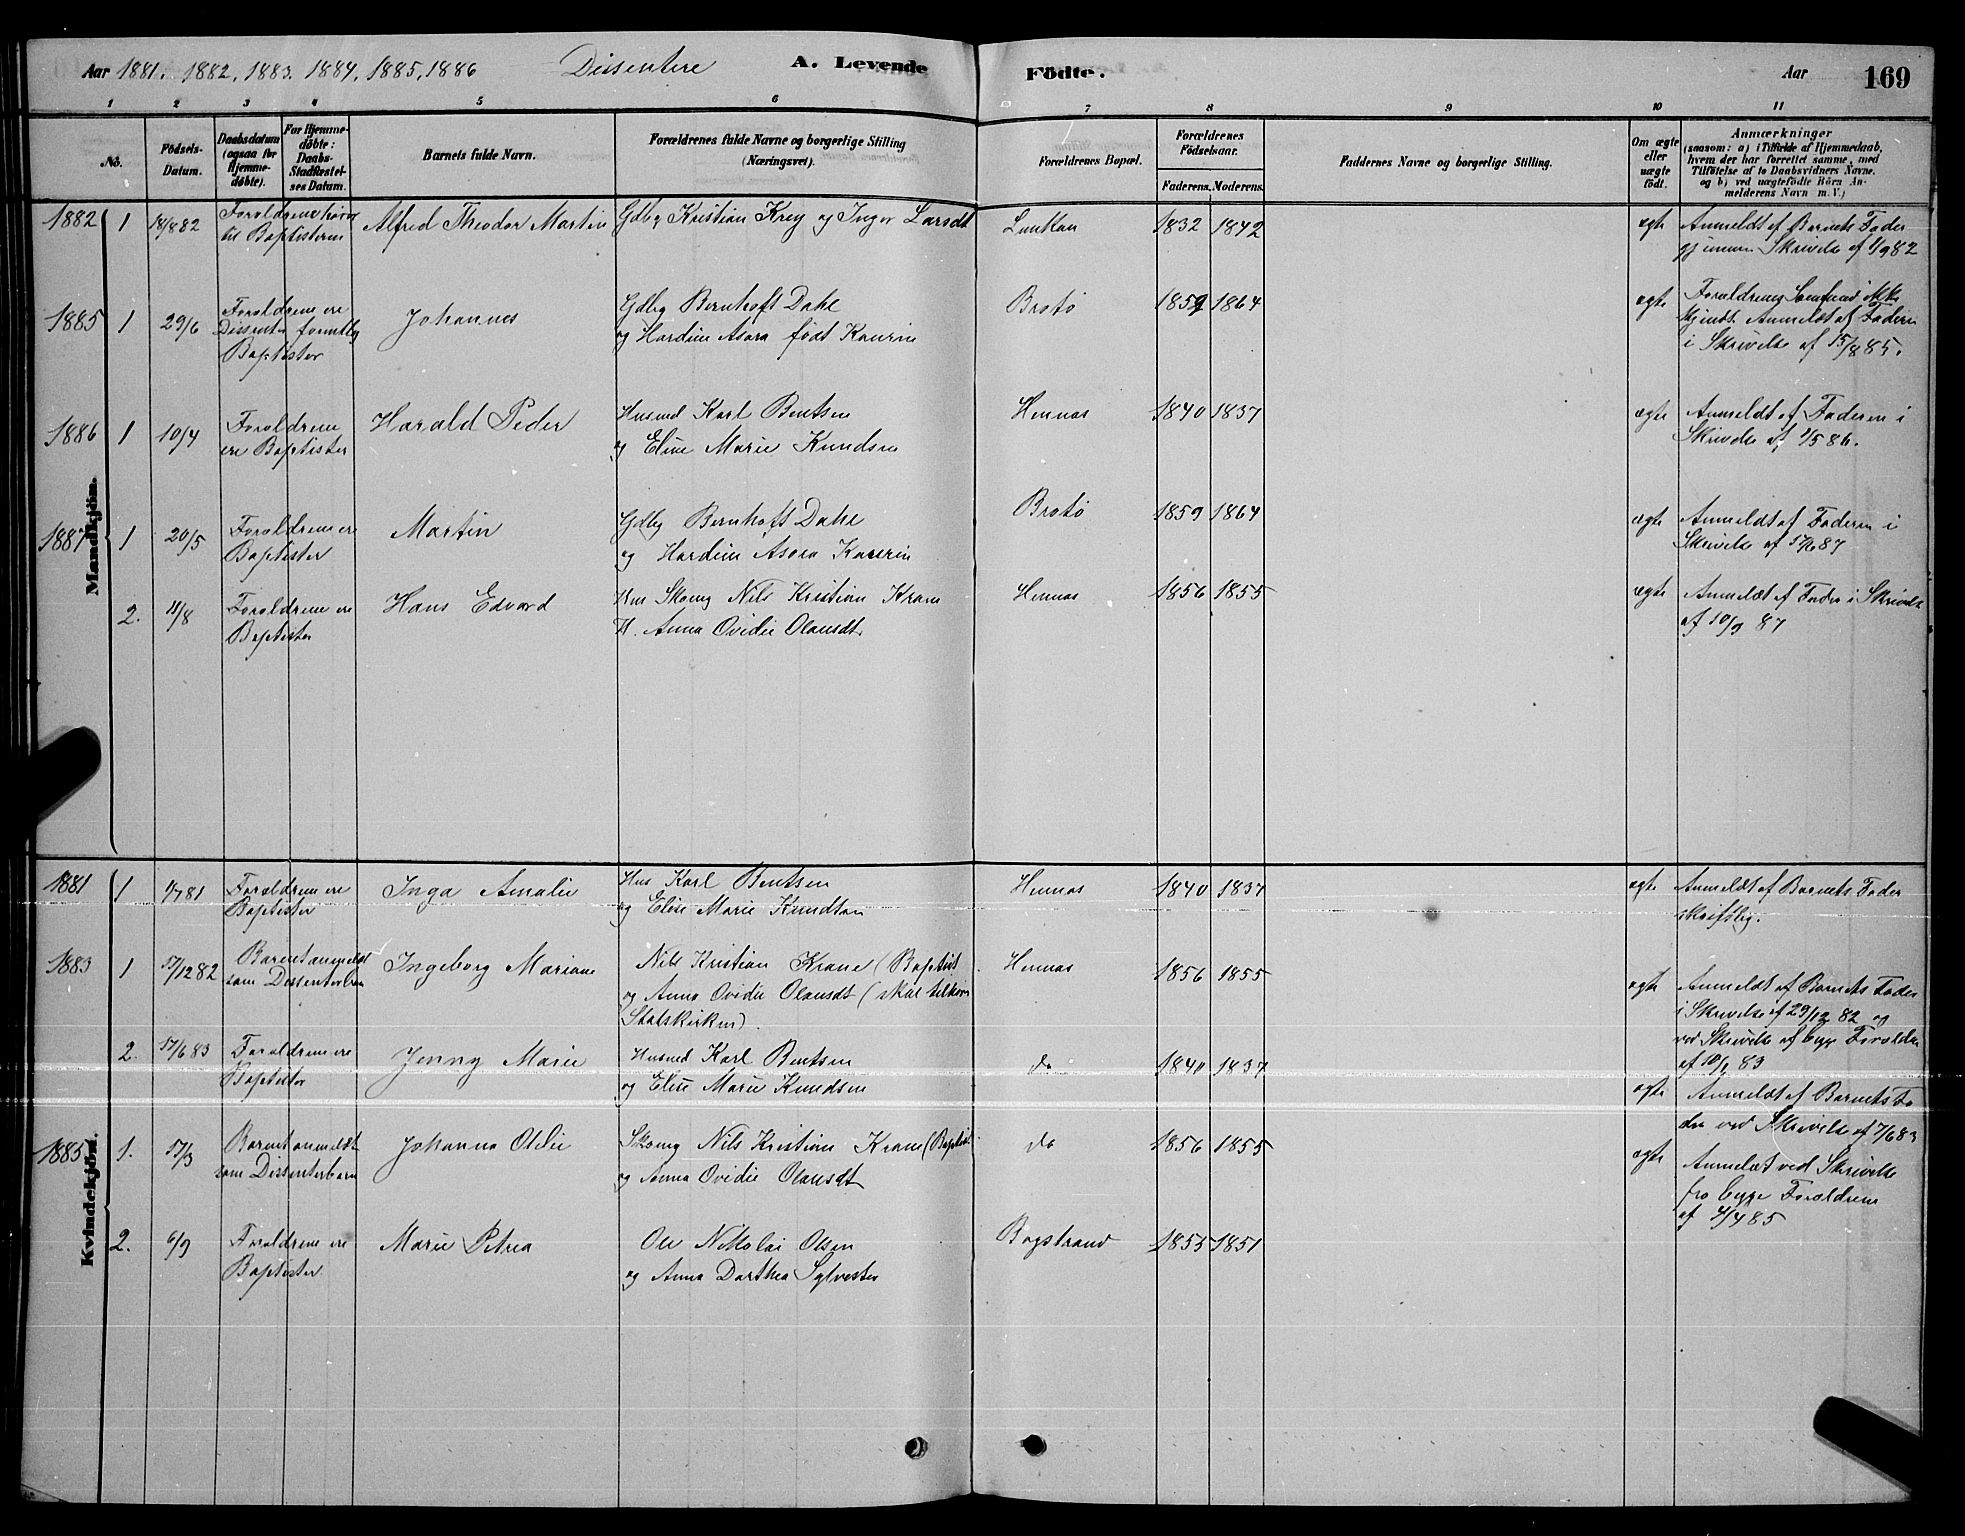 Aar 1881. 1882, 1883. 1884, 1885, 1886 Dissentere A. Levende Fødte. Aar 169
1 2 3 4 5 6 7 8 9 10 11
No.
Fødsels-Datum.
Daabsdatum (ogsaa for Hjemme-døbte).
For Hjemme-døbte: Daabs-Stadfæstel-ses Datum.
Barnets fulde Navn.
Forældrenes fulde Navne og borgerlige Stilling (Næringsvei).
Forældrenes Bopæl.
Forældrenes Fødselsaar.
Faderens. Moderens.
Faddernes Navne og borgerlige Stilling.
Om ægte eller uægte født.
Anmærkninger
(saasom: a) i Tilfælde af Hjemmedaab, hvem der har forrettet samme, med Tilføielse af to Daabsvidners Navne. og b) ved uægtefødte Børn Anmelderens Navn m. V.)
Mandkjøn.
1882 1 18/8 82 Forældrene hører Alfred Theodor Martin Gdbg Kristian Krey og Inger Larsdt Lunkan 1832 1842 ægte Anmeldt af Barnets Fader
til Baptisterne gjennem Skrivelse af 1/9 82
1885 1 29/6 Forældrene ere Johannes Gdbg Bernhoft Dahl Brotø 1859 1864 ægte Forældrenes Samfund ikke
Dissenter formtlig og Hardine Asora født Kaurin kjendt. Anmeldt af Faderen
Baptister i Skrivelse af 15/8 85.
1886 1 10/4 Forældrene Harald Peder Husmd Karl Bentsen Hennas 1840 1837 ægte Anmeldt af Faderen i
ere Baptister og Elise Marie Knudsen Skrivelse af 1/5 86.
1887 1 20/5 Forældrene ere Martin Gdbg Bernhoft Dahl Brotø 1859 1864 ægte Anmeldt af Faderen i
Baptister og Hardine Asora Kaurin Skrivelse af 17/6 87
2. 11/8 Forældrene ere Hans Edvard Skomg Nils Kristian Krane Hennas 1856 1855 ægte Anmeldt af Fader i Skrivelse
Baptister H. Anna Ovidie Olausdt. af 10/9 87
Kvindekjøn.
1881 1 1/7 81 Forældrene ere Inga Amalie Hus Karl Bentsen Hennas 1840 1837 ægte Anmeldt af Barnets Fader
Baptister og Elise Marie Knudtsn skriftlig.
1883 1 17/12 82 Barnet anmeldt Ingeborg Mariane Nils Kristian Krane (Baptist Hennas 1856 1855 ægte Anmeldt af Barnets Fader
som Dissenterbarn og Anna Ovidie Olausdt (skal tilhøre i Skrivelse af 29/12 82 og
Statskirken). ved Skrivelse af begge Forældre
2. 17/6 83 Forældrene ere Jenny Marie Husmd Karl Bentsen do 1840 1837 af 10/1 83
Baptister og Elise Marie Knudsen ægte Anmeldt af Barnets Fa
der ved Skrivelse af 7/6 83
1885 1. 17/3 Barnet anmeldt Johanna Otilie Skomg Nils Kristian Krane (Baptist do 1856 1855 ægte Anmeldt ved Skrivelse
som Dissenterbarn og Anna Ovidie Olausdt fra begge Forældrene
af 4/4 85
2. 6/9 Forældrene ere Marie Petrea Ole Nikolai Olsen Bogstrand 1855 1851
Baptister og Anna Dorthea Sylvester